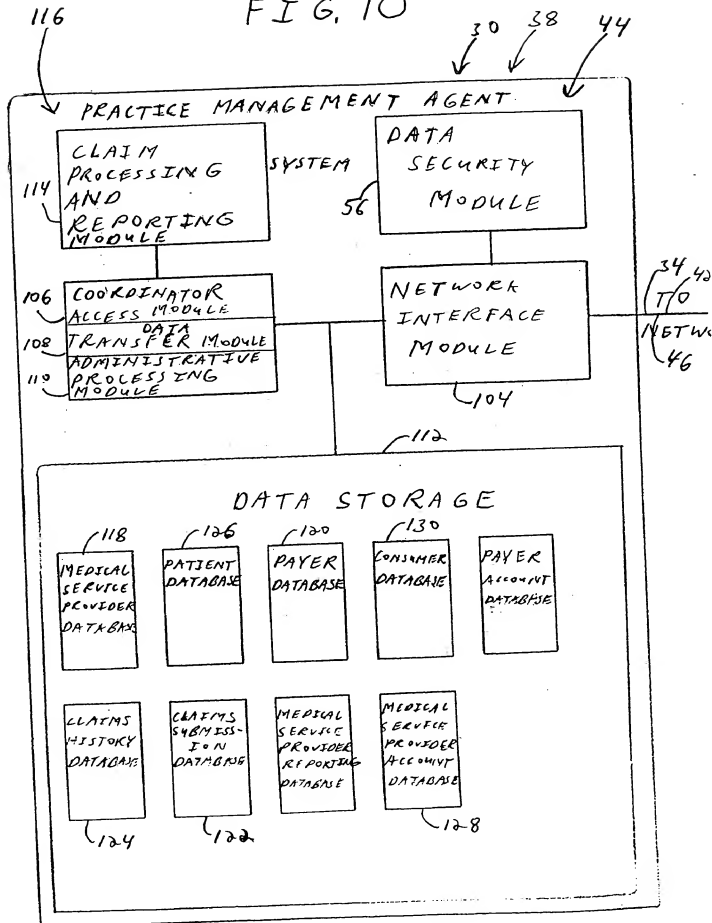 FIG. 10
116
30
38
44
PRACTICE MANAGEMENT AGENT
SYSTEM
CLAIM
PROCESSING
AND
REPORTING
MODULE
114
DATA
SECURITY
MODULE
56
106
COORDINATOR
ACCESS MODULE
108
DATA
TRANSFER MODULE
110
ADMINISTRATIVE
PROCESSING
MODULE
NETWORK
INTERFACE
MODULE
104
34
42
TO
NETWO
46
112
DATA STORAGE
118
MEDICAL
SERVICE
PROVIDER
DATABASE
126
PATIENT
DATABASE
120
PAYER
DATABASE
130
CONSUMER
DATABASE
PAYER
ACCOUNT
DATABASE
CLAIMS
HISTORY
DATABASE
124
CLAIMS
SUBMISS-
ION
DATABASE
122
MEDICAL
SERVICE
PROVIDER
REPORTING
DATABASE
MEDICAL
SERVICE
PROVIDER
ACCOUNT
DATABASE
128